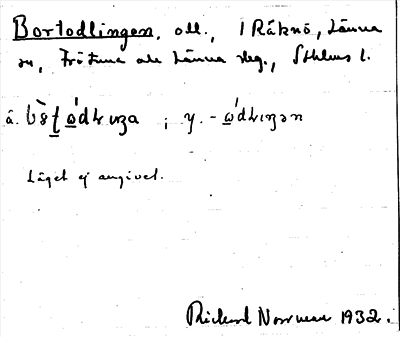 Bortodlingen, oll., 1 Råknö, Länna
sn, Frötuna och Länna skg., Sthlms l.
å. ; y. -
Läget ej angivet.
Rickard Norrman 1932.